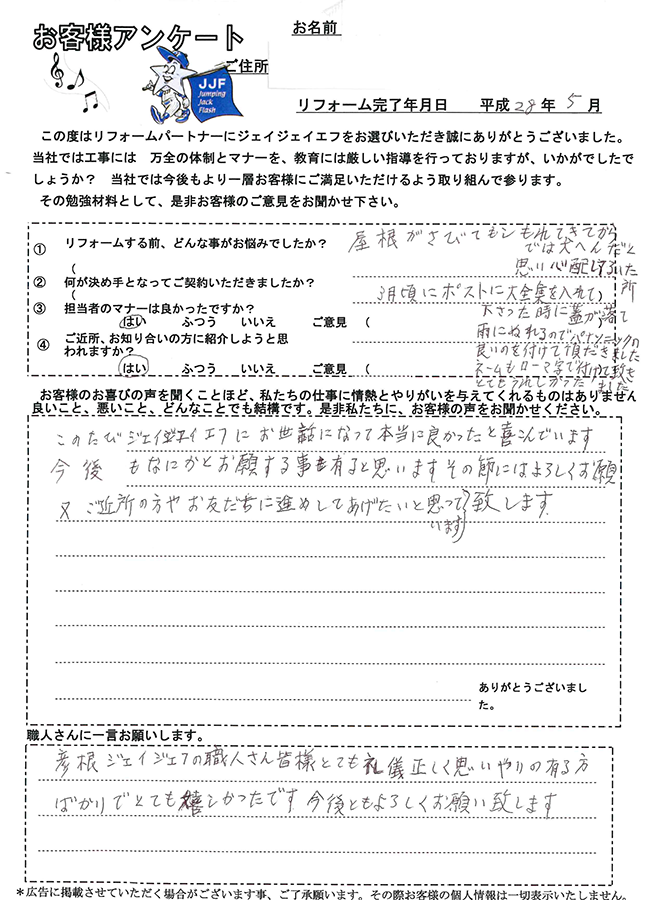 お客様アンケート
お名前
ご住所
JJF
Jumping
Jack
Flash
リフォーム完了年月日 平成28年5月
この度はリフォームパートナーにジェイジェイエフをお選びいただき誠にありがとうございました。
当社では工事には 万全の体制とマナーを、教育には厳しい指導を行っておりますが、いかがでしたで
しょうか? 当社では今後もより一層お客様にご満足いただけるよう取り組んで参ります。
その勉強材料として、是非お客様のご意見をお聞かせ下さい。
① リフォームする前、どんな事がお悩みでしたか?
( 屋根がさびてもしもれてきてから
では大へんだと
思い心配していた
② 何が決め手となってご契約いただきましたか?
( 3月頃にポストに大全集を入れて) 所
③ 担当者のマナーは良かったですか?
はい ふつう いいえ ご意見 (
大きさった時に蓋が落て
雨にぬれるのでパナソニックの
④ ご近所、お知り合いの方に紹介しようと思
われますか?
はい ふつう いいえ ご意見 (
良いのを付けて頂だきました
ネームもローマ字で付けて頂き
とてもうれしかったりました
お客様のお喜びの声を聞くことほど、私たちの仕事に情熱とやりがいを与えてくれるものはありません
良いこと、悪いこと、どんなことでも結構です。是非私たちに、お客様の声をお聞かせください。
このたびジェイジェイエフにお世話になって本当に良かったと喜こんでいます
今後 もなにかとお願する事も有ると思いますその節にはよろしくお願
又 ご近所の方やお友だちに進めしてあげたいと思って 致します
います
ありがとうございまし
た。
職人さんに一言お願いします。
彦根ジェイジェフの職人さん皆様とても礼儀正しく思いやりの有る方
ばかりでとても嬉しかったです 今後ともよろしくお願い致します
*広告に掲載させていただく場合がございます事、ご了承願います。その際お客様の個人情報は一切表示いたしません。